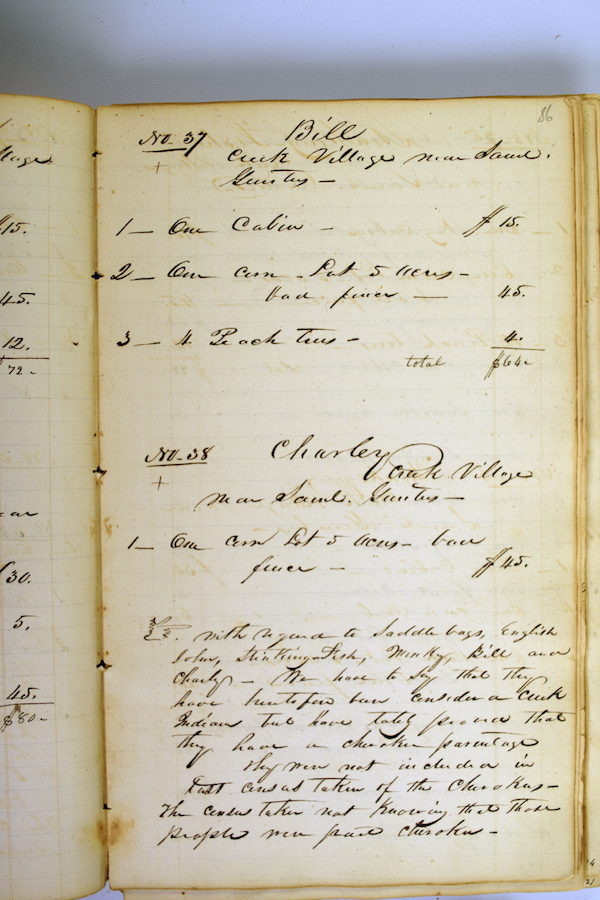 llage
15.
45.
12.
72-
ear
30.
5.
45.
$80-
86
No. 37 Bill
Creek Village near Saml.
Gunters -
1 - One Cabin - $15.
2 - One corn Lot 5 acres -
bad fence - 45.
3 - 4 Peach trees - 4.
total $64-
No. 38 Charley
Creek Village
near Saml. Gunters -
1 - One corn Lot 5 acres - bad
fence - $45.
with regard to Saddle bags, English
John, Stinking Fish, Bill and
Charly - We have to say that they
have heretofore been considerd Creek
Indians but have lately proved that
they have a cherokee parentage
they were not included in
Last census taken of the Cherokees -
The census taker not knowing that those
people were part cherokees -